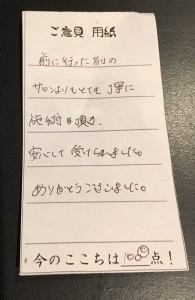 ご意見 用紙
前に行った別の
サロンよりもとても丁寧に
施術を頂き、
安心して受けられました。
ありがとうございました。
今のここちは100点！